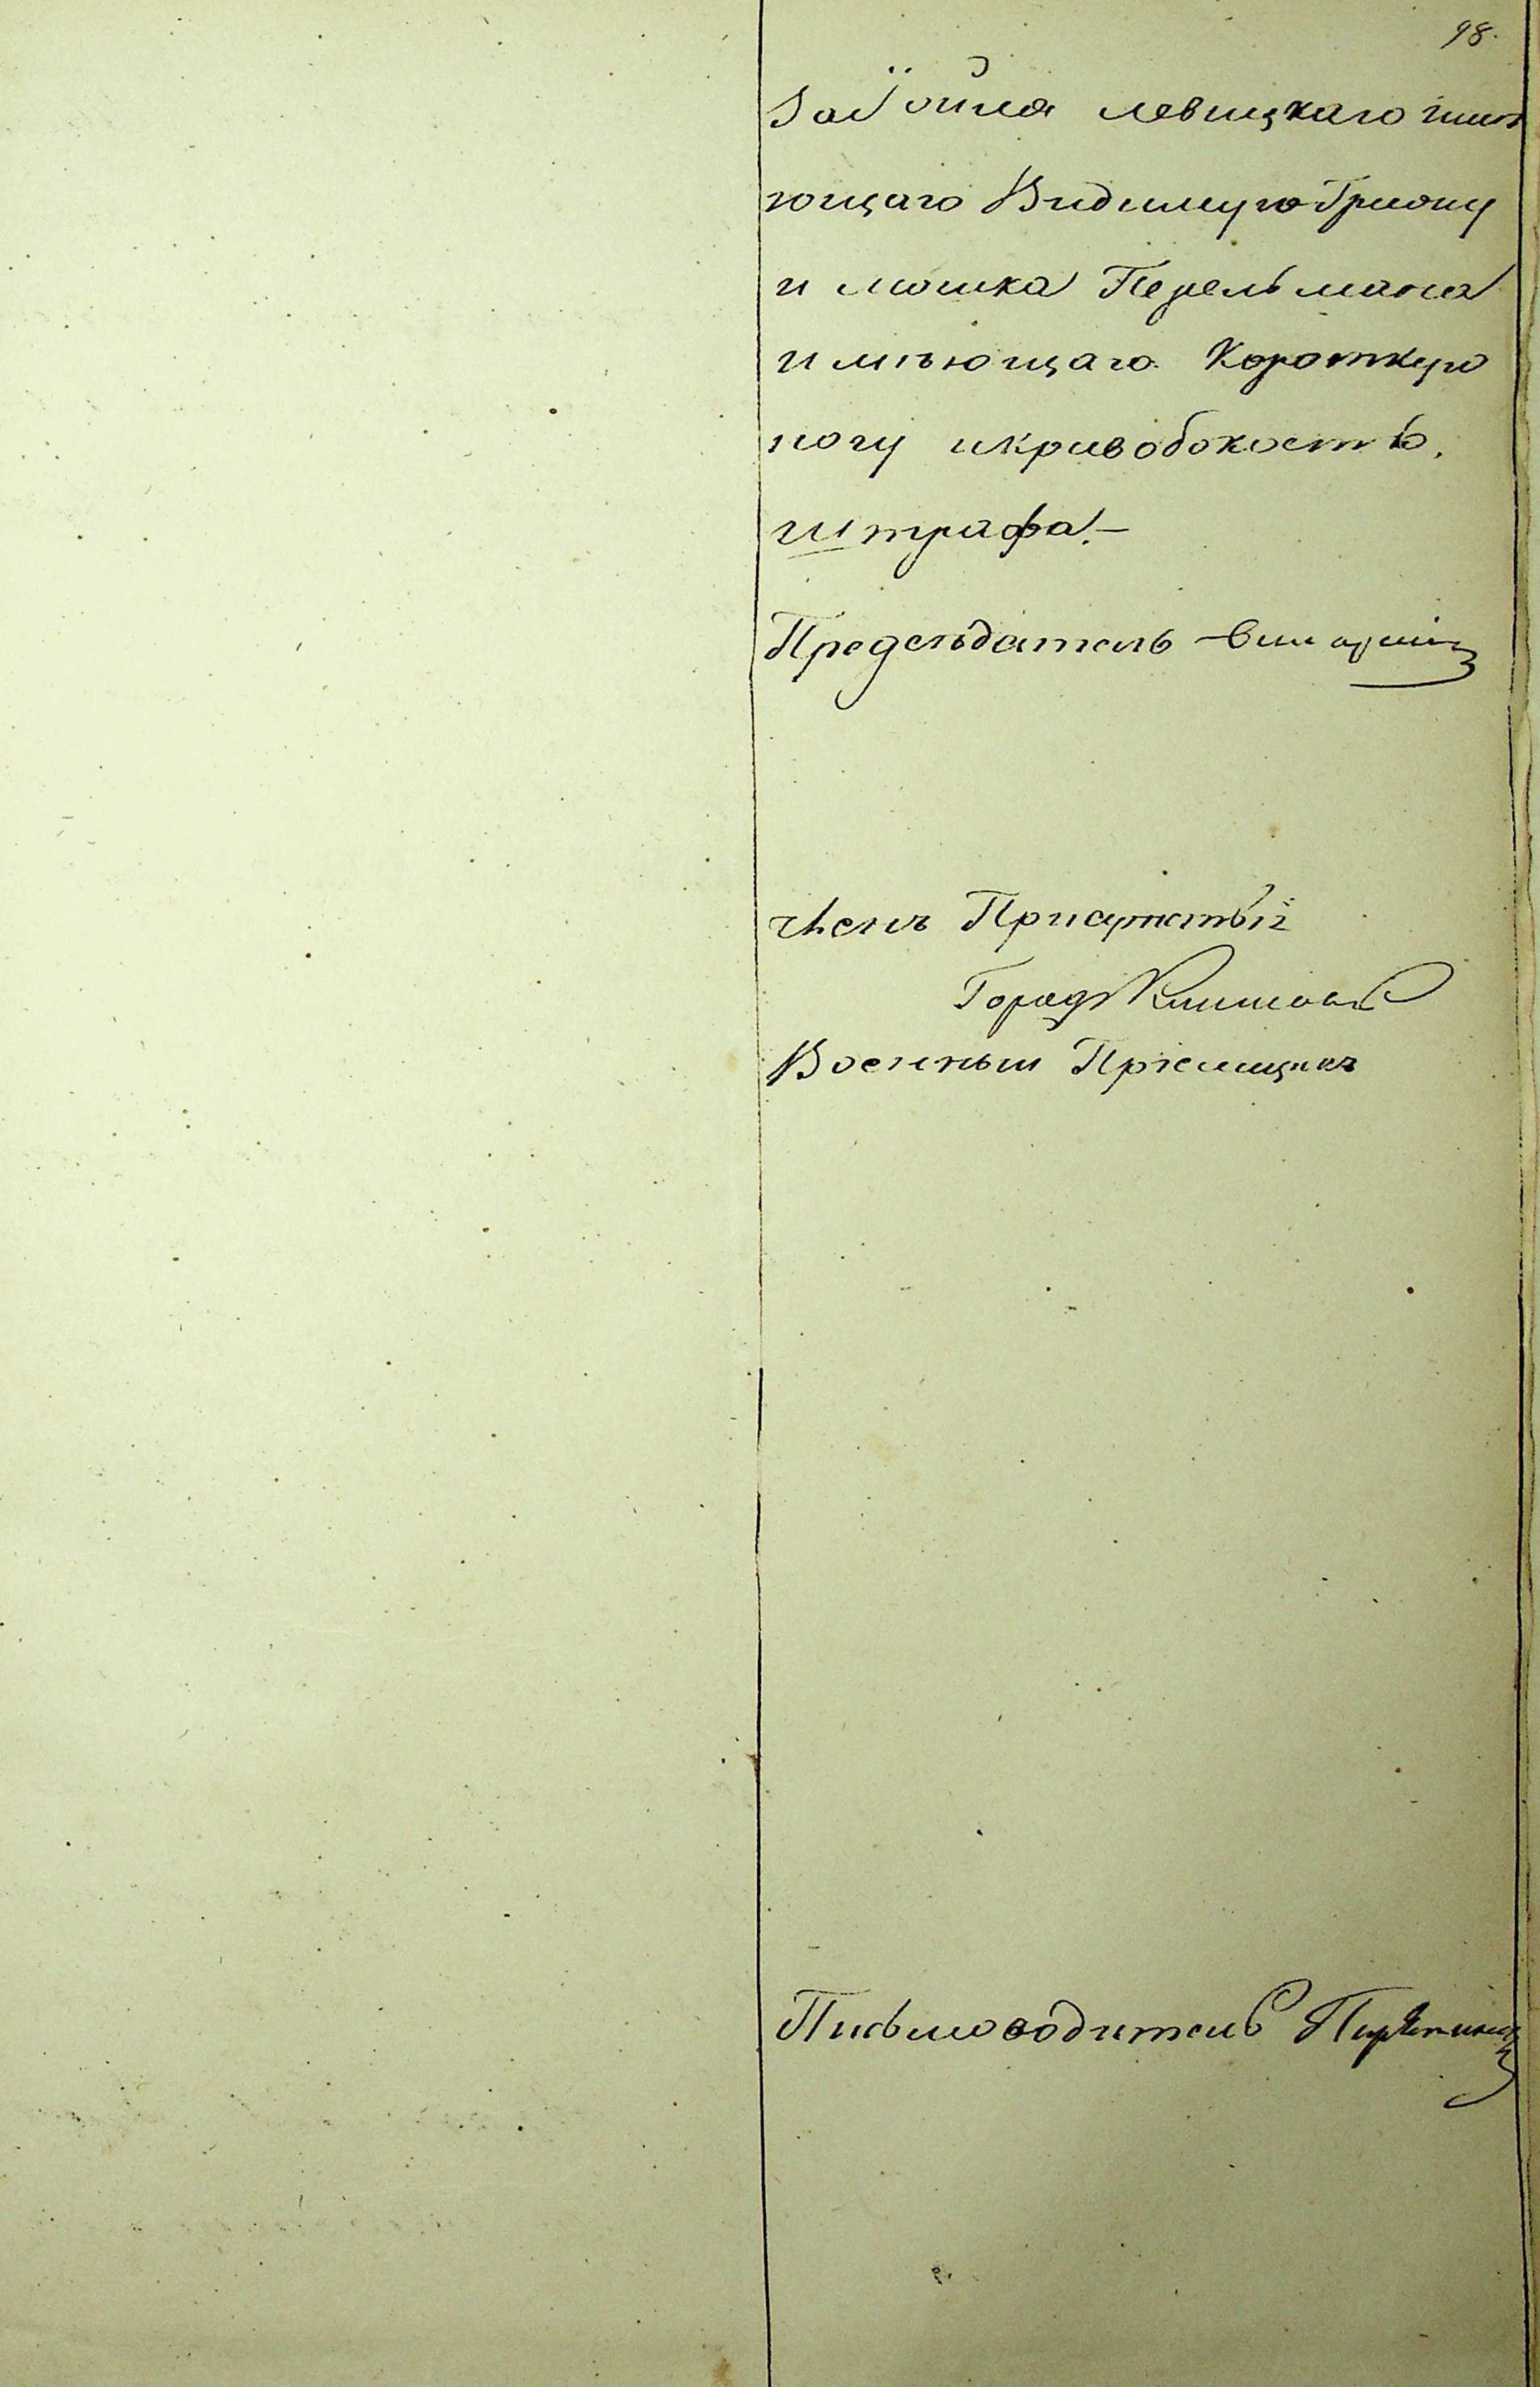 98.
левицкаго имѣ
ющаго Видимую Грыжу
и мошкаПерельмана
имѣющаго Короткую
ногу икривобокость.
штрафа.—
Председатель
Членъ Присутствія
Военный Пріемщикъ
Письмоводитель